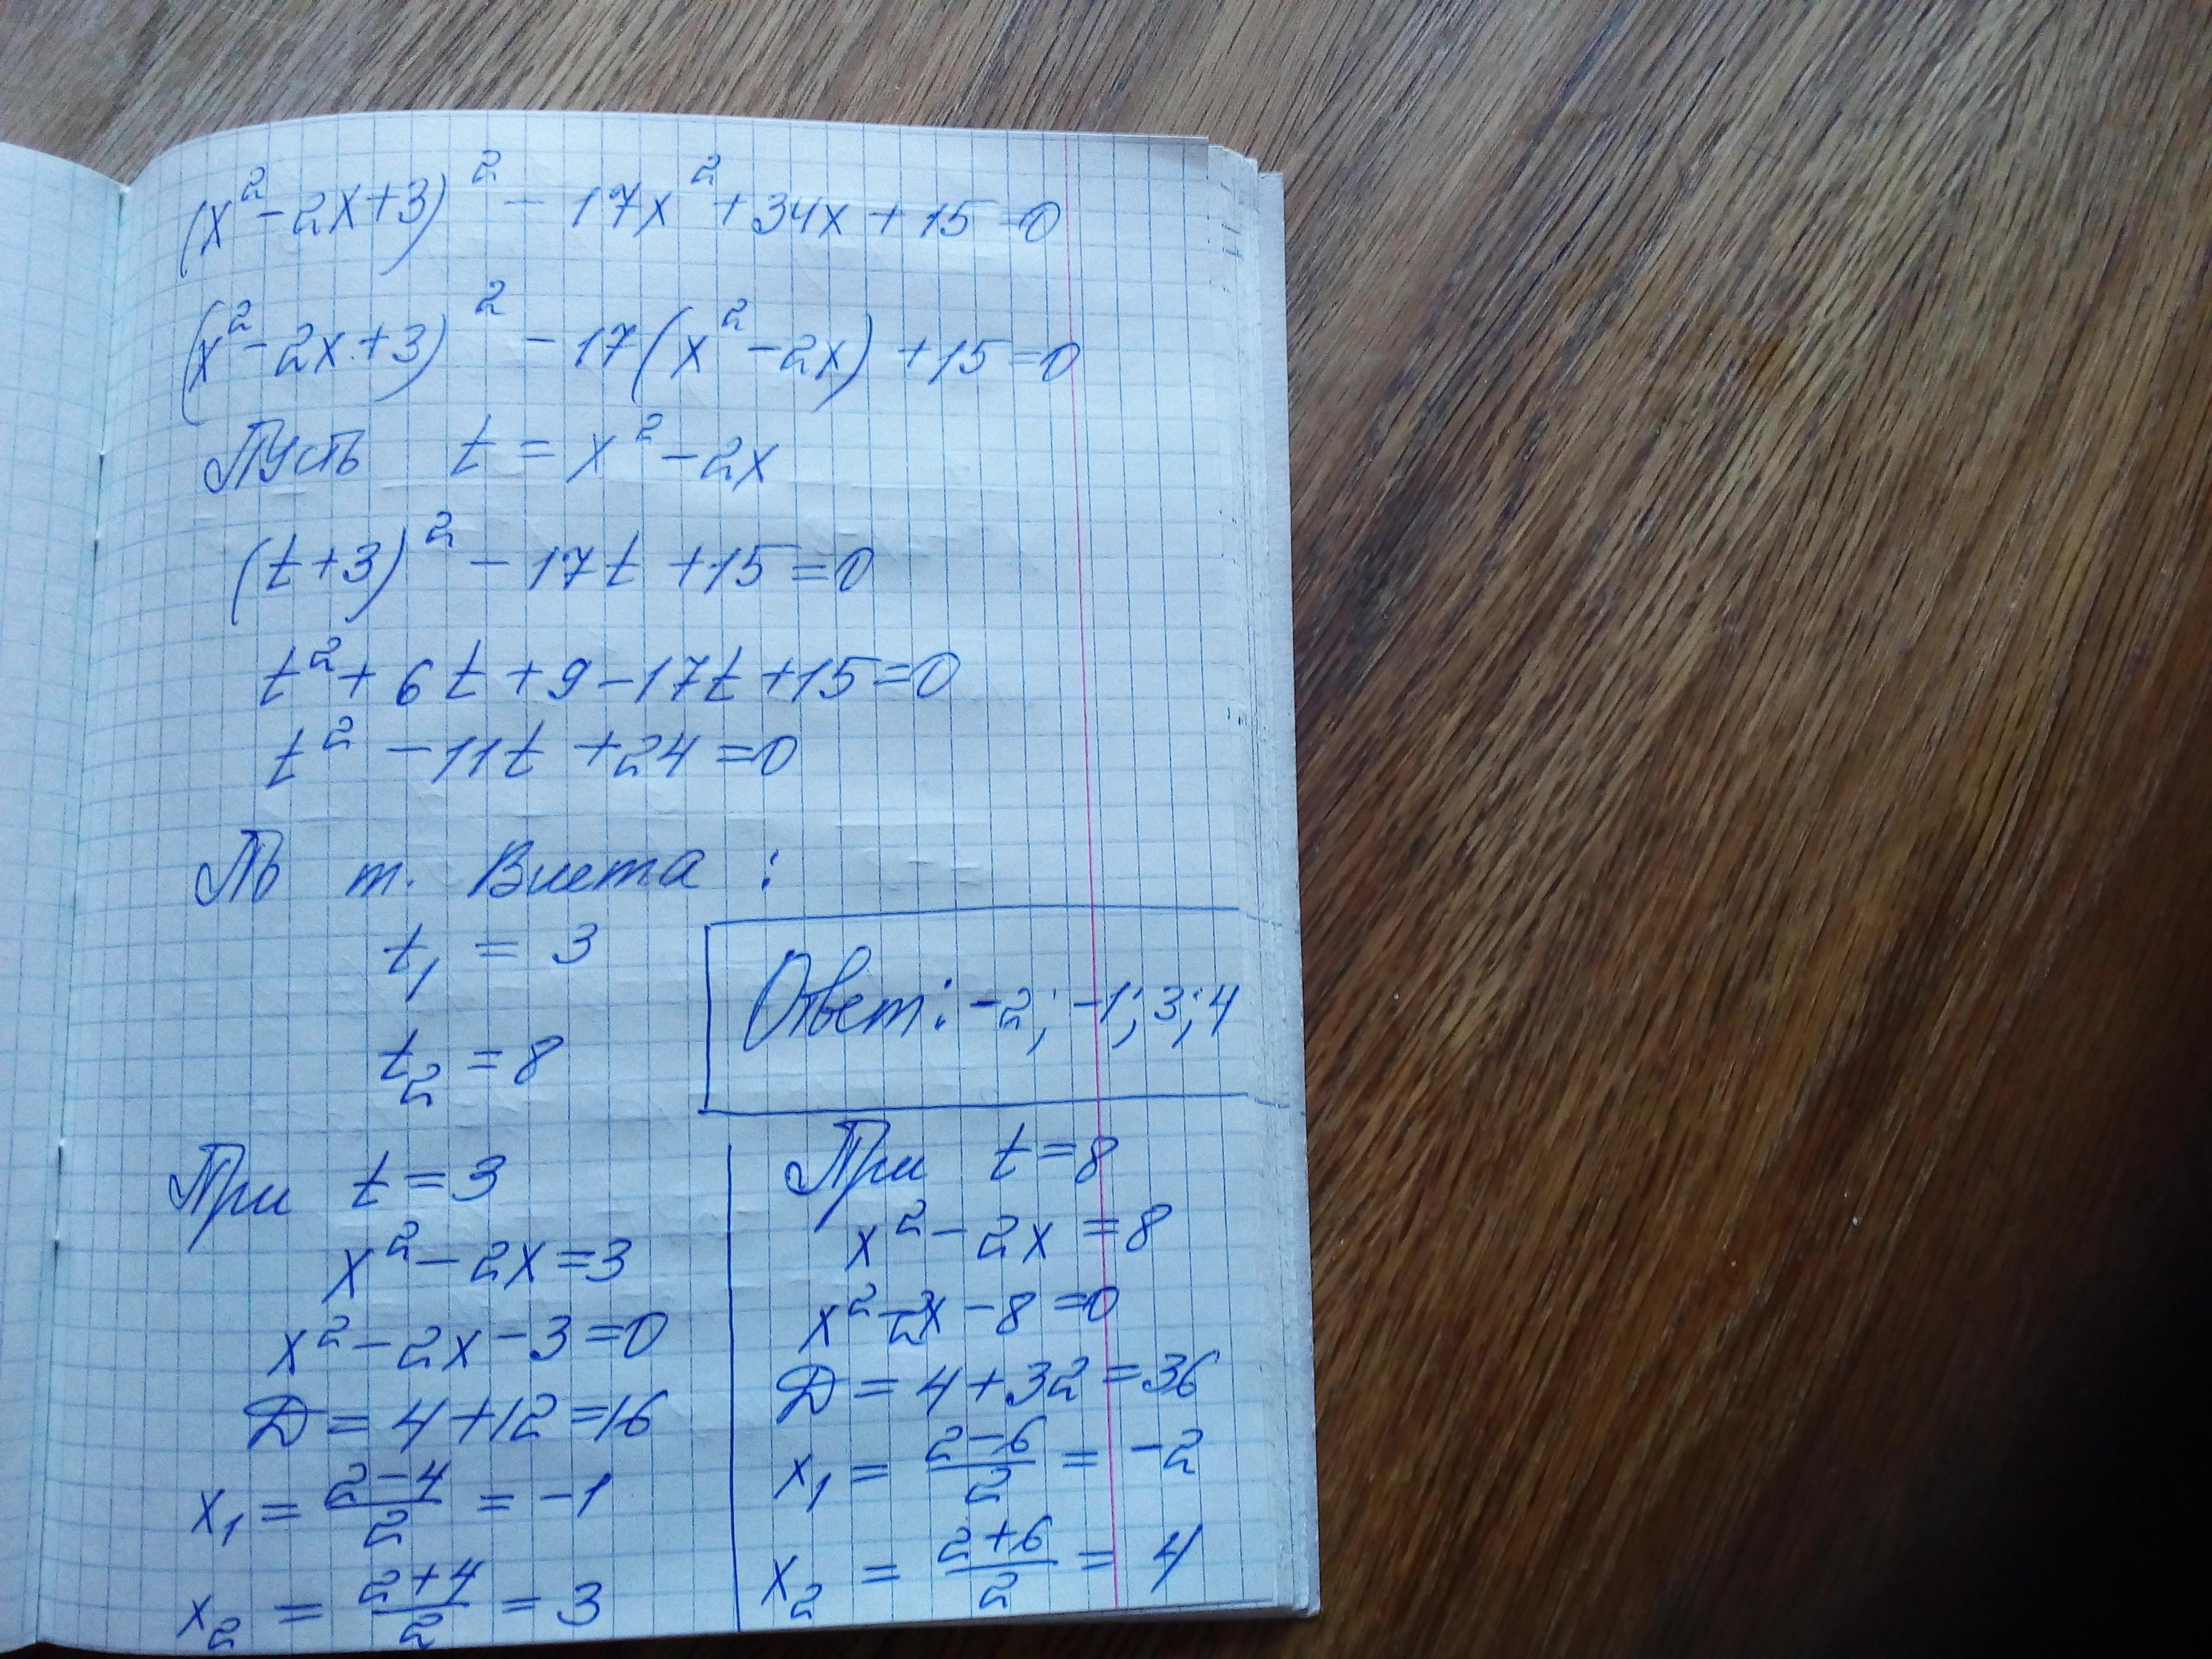 (x²-2x+3)² - 17x² + 34x + 15 = 0
(x²-2x+3)² - 17(x²-2x) + 15 = 0
Пусть t = x² - 2x
(t+3)² - 17t + 15 = 0
t² + 6t + 9 - 17t + 15 = 0
t² - 11t + 24 = 0
По т. Виета :
t₁ = 3
t₂ = 8
Ответ: -2; -1; 3; 4
При t = 3
x² - 2x = 3
x² - 2x - 3 = 0
D = 4 + 12 = 16
x₁ = (2-4)/2 = -1
x₂ = (2+4)/2 = 3
При t = 8
x² - 2x = 8
x² - 2x - 8 = 0
D = 4 + 32 = 36
x₁ = (2-6)/2 = -2
x₂ = (2+6)/2 = 4